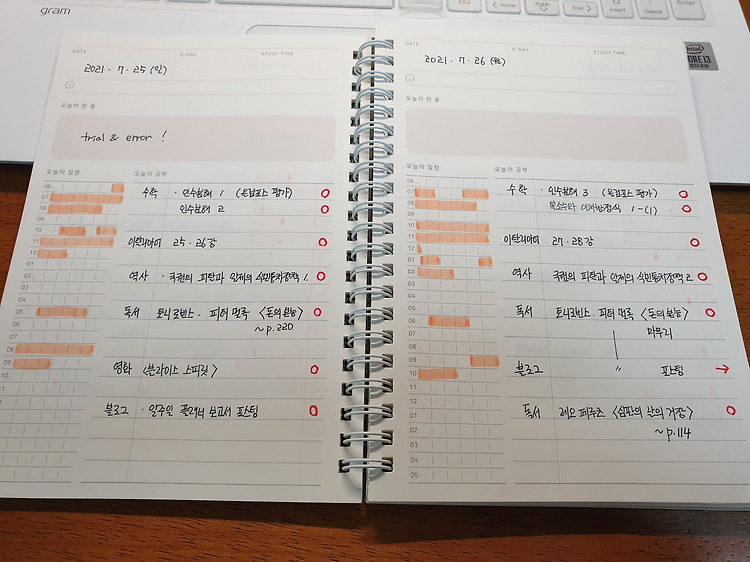 gram
Home
End
Insert
Delete
Enter
intel
CORE i3
10TH GEN
DATE
D-DAY
STUDY TIME
2021. 7. 25 (일)
오늘의 한 줄
trial & error !
오늘의 일정
오늘의 공부
06
07
08
09
10
11
12
01
02
03
04
05
06
07
08
09
10
수학 · 인수분해 1 (온컴퍼스 평가)
인수분해 2
이탈리아어 25·26강
역사 · 국권의 피탈과 일제의 식민통치정책 1.
독서 토니로빈스·피터 멀룩 <돈의 본능>
~p.220
영화 <블라이스 스피릿>
블로그 · 일주일 플래너 보고서 포스팅
DATE
D-DAY
STUDY TIME
2021. 7. 26 (月)
오늘의 한 줄
오늘의 일정
오늘의 공부
06
07
08
09
10
11
12
01
02
03
04
05
06
07
08
09
10
11
12
01
02
03
04
05
수학 · 인수분해 3 (온컴퍼스 평가)
복소수와 이차방정식 1-(1)
이탈리아어 27·28강
역사 국권의 피탈과 일제의 식민통치정책 2
독서 토니로빈스·피터 멀룩 <돈의 본능>
마무리
블로그 〃 포스팅
독서 레오 페루츠 <심판의 날의 거장>
~p.114